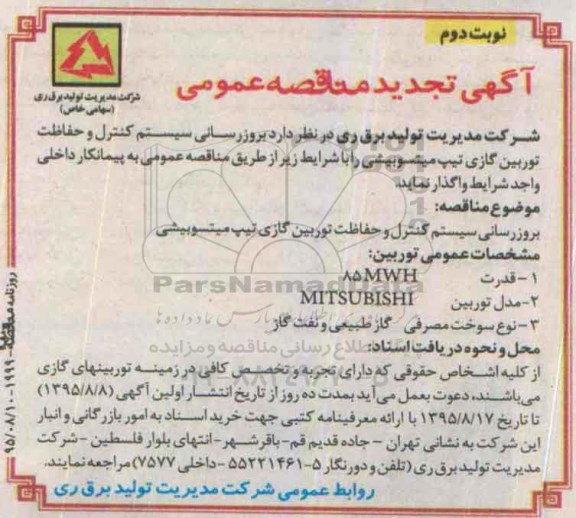 نوبت دوم
آگهی تجدید مناقصه عمومی
شرکت مدیریت تولید برق ری
(سهامی خاص)
شرکت مدیریت تولید برق ری در نظر دارد بروزرسانی سیستم کنترل و حفاظت
توربین گازی تیپ میتسوبیشی را با شرایط زیر از طریق مناقصه عمومی به پیمانکار داخلی
واجد شرایط واگذار نماید.
موضوع مناقصه:
بروزرسانی سیستم کنترل و حفاظت توربین گازی تیپ میتسوبیشی
مشخصات عمومی توربین:
۱- قدرت ۸۵MWH
۲- مدل توربین MITSUBISHI
۳- نوع سوخت مصرفی گاز طبیعی و نفت گاز
محل و نحوه دریافت اسناد:
از کلیه اشخاص حقوقی که دارای تجربه و تخصص کافی در زمینه توربینهای گازی
می‌باشند، دعوت بعمل می‌آید بمدت ده روز از تاریخ انتشار اولین آگهی (۱۳۹۵/۸/۸)
تا تاریخ ۱۳۹۵/۸/۱۷ با ارائه معرفینامه کتبی جهت خرید اسناد به امور بازرگانی و انبار
این شرکت به نشانی تهران - جاده قدیم قم - باقرشهر - انتهای بلوار فلسطین - شرکت
مدیریت تولید برق ری (تلفن و دورنگار ۵-۵۵۲۲۱۴۶۱ - داخلی ۷۵۷۷) مراجعه نمایند.
روابط عمومی شرکت مدیریت تولید برق ری
روزنامه مناقصه - ۱۹۹۹ - ۹۵/۰۸/۱۰
ParsNamadData
پایگاه اطلاع رسانی مناقصه و مزایده